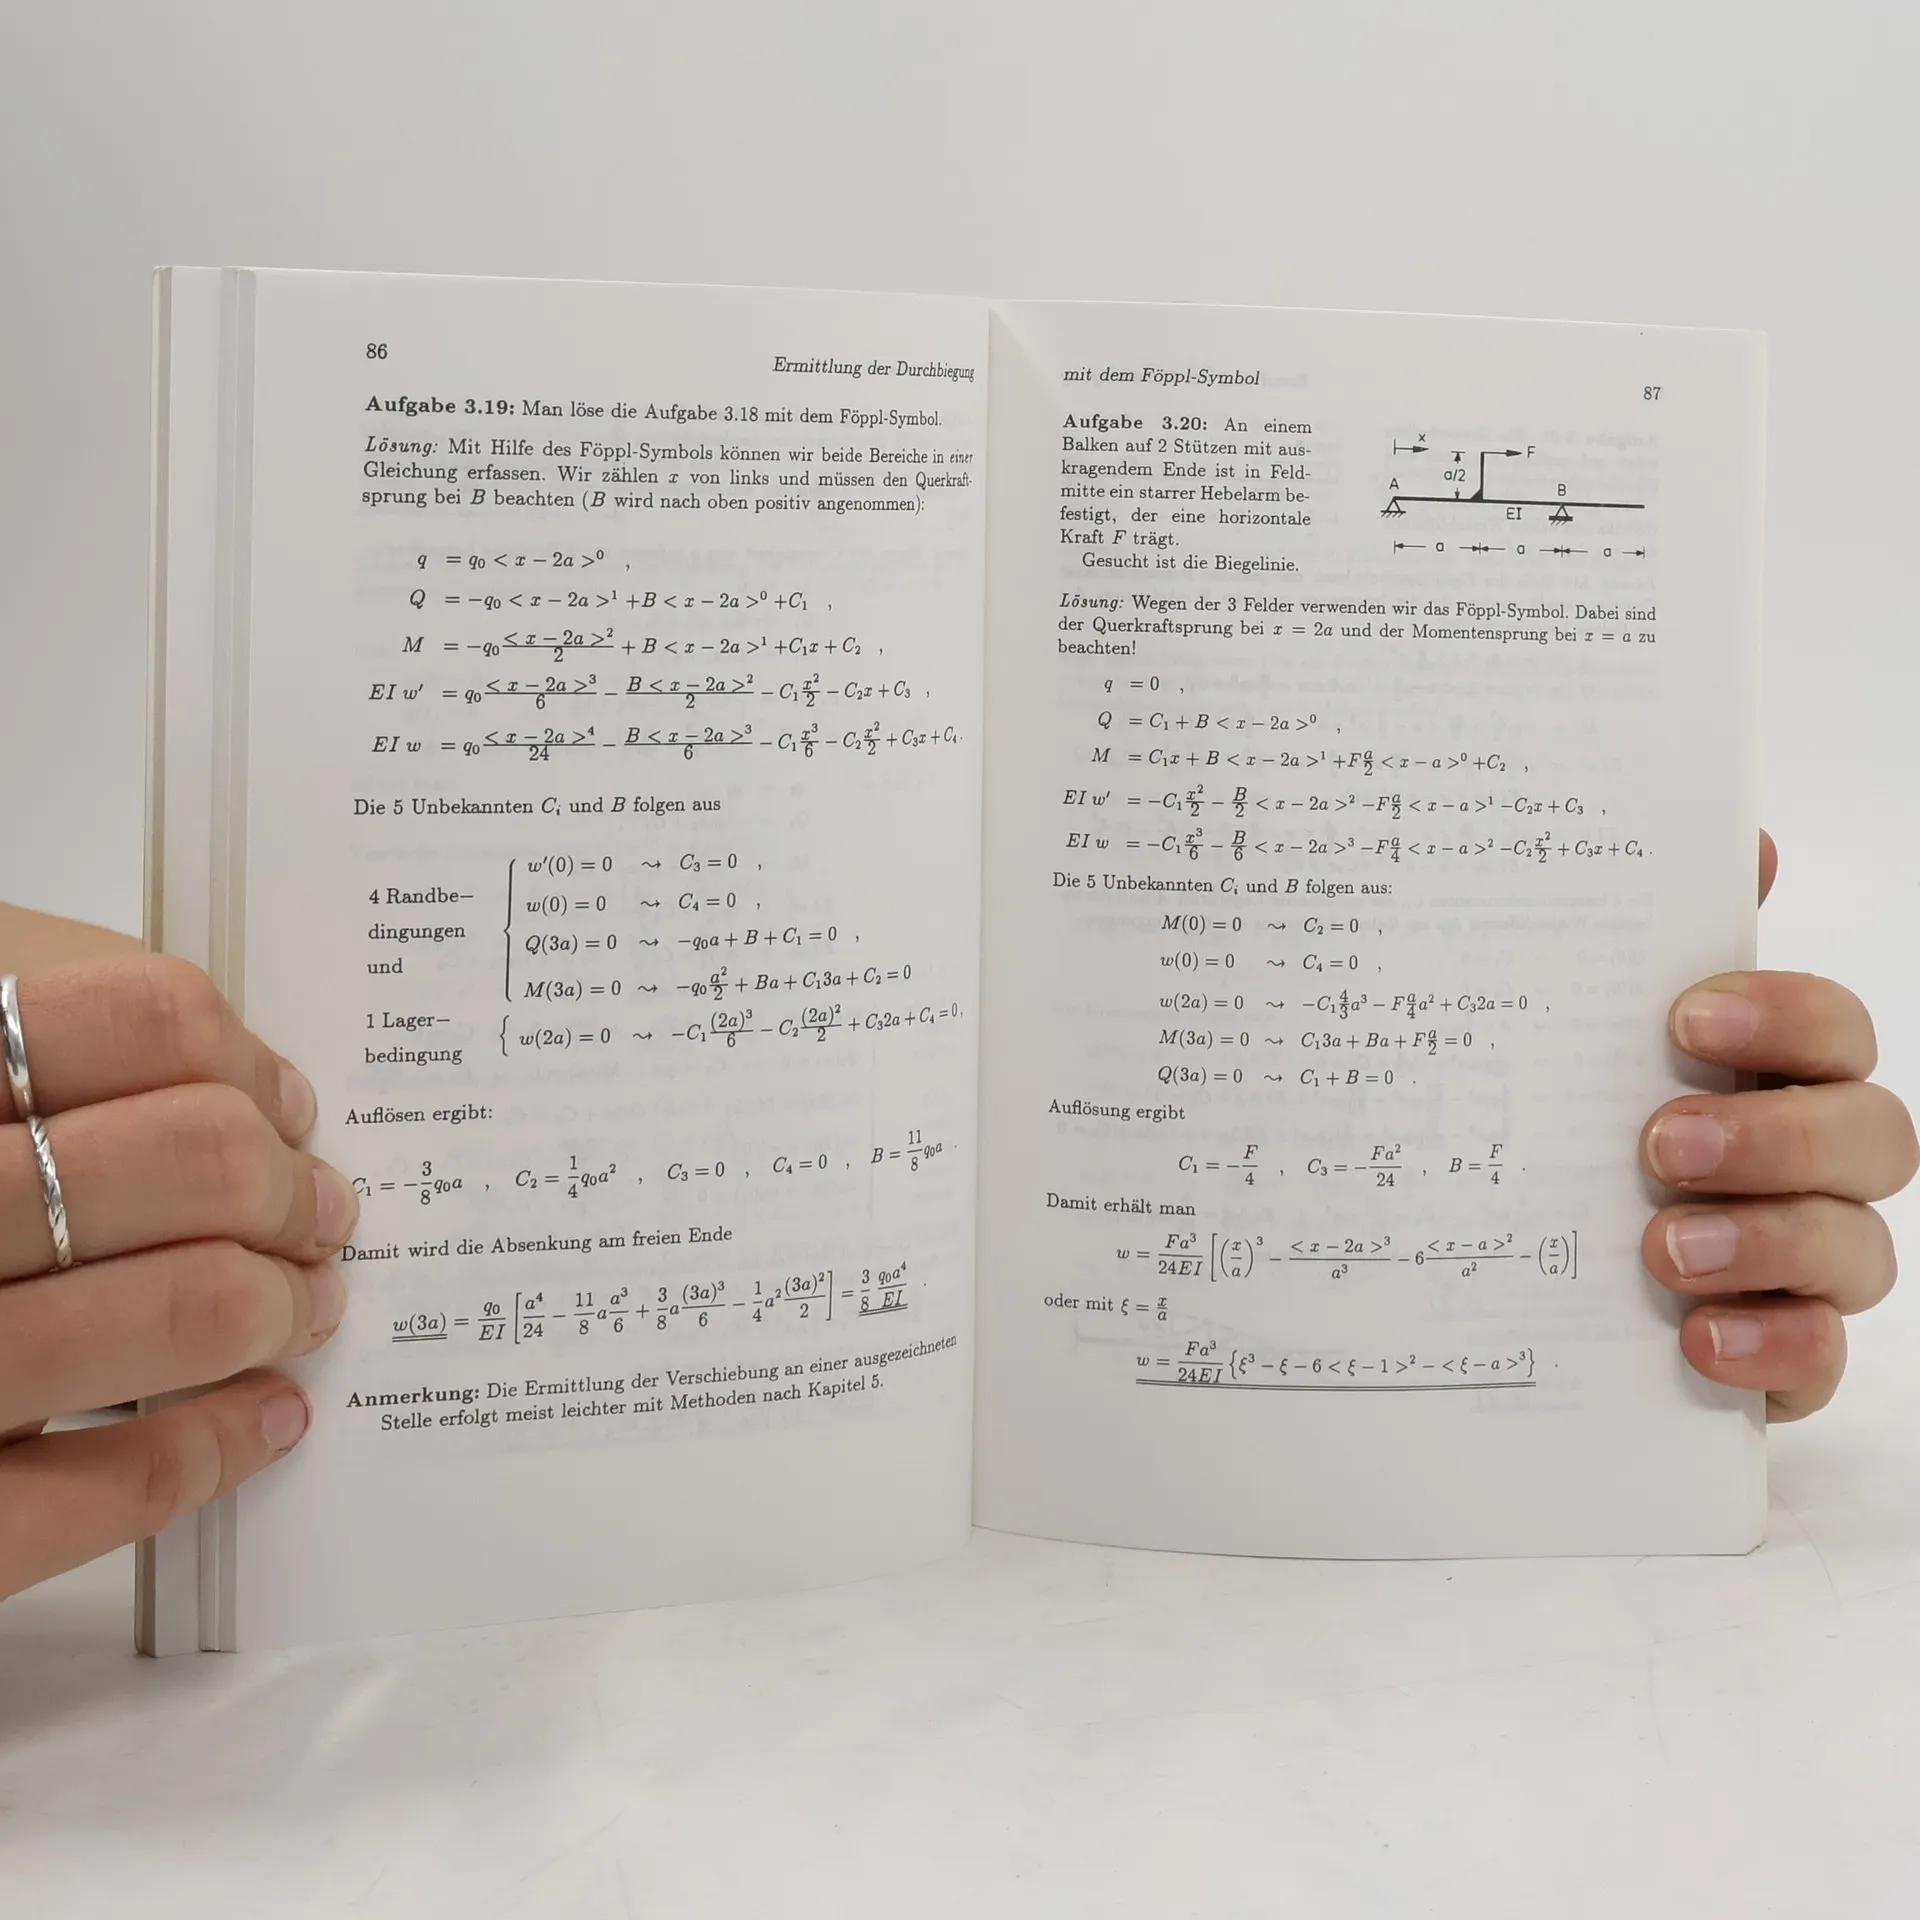 86
Ermittlung der Durchbiegung
Aufgabe 3.19: Man löse die Aufgabe 3.18 mit dem Föppl-Symbol.
Lösung: Mit Hilfe des Föppl-Symbols können wir beide Bereiche in einer
Gleichung erfassen. Wir zählen x von links und müssen den Querkraft-
sprung bei B beachten (B wird nach oben positiv angenommen):
q = q₀ < x − 2a >⁰ ,
Q = −q₀ < x − 2a >¹ +B < x − 2a >⁰ +C₁ ,
M = −q₀ < x − 2a >²/2 + B < x − 2a >¹ +C₁x + C₂ ,
EI w′ = q₀ < x − 2a >³/6 − B < x − 2a >²/2 − C₁ x²/2 − C₂x + C₃ ,
EI w = q₀ < x − 2a >⁴/24 − B < x − 2a >³/6 − C₁ x³/6 − C₂ x²/2 + C₃x + C₄ .
Die 5 Unbekannten Cᵢ und B folgen aus
4 Randbe−
dingungen
und
w′(0) = 0 ⇝ C₃ = 0 ,
w(0) = 0 ⇝ C₄ = 0 ,
Q(3a) = 0 ⇝ −q₀a + B + C₁ = 0 ,
M(3a) = 0 ⇝ −q₀ a²/2 + Ba + C₁3a + C₂ = 0
1 Lager−
bedingung
{ w(2a) = 0 ⇝ −C₁ (2a)³/6 − C₂ (2a)²/2 + C₃2a + C₄ = 0 ,
Auflösen ergibt:
C₁ = −3/8 q₀a , C₂ = 1/4 q₀a² , C₃ = 0 , C₄ = 0 , B = 11/8 q₀a .
Damit wird die Absenkung am freien Ende
w(3a) = q₀/EI [a⁴/24 − 11/8 a a³/6 + 3/8 a (3a)³/6 − 1/4 a² (3a)²/2] = 3/8 q₀a⁴/EI .
Anmerkung: Die Ermittlung der Verschiebung an einer ausgezeichneten
Stelle erfolgt meist leichter mit Methoden nach Kapitel 5.
mit dem Föppl-Symbol
87
Aufgabe 3.20: An einem
Balken auf 2 Stützen mit aus-
kragendem Ende ist in Feld-
mitte ein starrer Hebelarm be-
festigt, der eine horizontale
Kraft F trägt.
Gesucht ist die Biegelinie.
x
F
a/2
A
B
EI
a a a
Lösung: Wegen der 3 Felder verwenden wir das Föppl-Symbol. Dabei sind
der Querkraftsprung bei x = 2a und der Momentensprung bei x = a zu
beachten!
q = 0 ,
Q = C₁ + B < x − 2a >⁰ ,
M = C₁x + B < x − 2a >¹ +F a/2 < x − a >⁰ +C₂ ,
EI w′ = −C₁ x²/2 − B/2 < x − 2a >² −F a/2 < x − a >¹ −C₂x + C₃ ,
EI w = −C₁ x³/6 − B/6 < x − 2a >³ −F a/4 < x − a >² −C₂ x²/2 + C₃x + C₄ .
Die 5 Unbekannten Cᵢ und B folgen aus:
M(0) = 0 ⇝ C₂ = 0 ,
w(0) = 0 ⇝ C₄ = 0 ,
w(2a) = 0 ⇝ −C₁ 4/3 a³ − F a/4 a² + C₃2a = 0 ,
M(3a) = 0 ⇝ C₁3a + Ba + F a/2 = 0 ,
Q(3a) = 0 ⇝ C₁ + B = 0 .
Auflösung ergibt
C₁ = −F/4 , C₃ = −Fa²/24 , B = F/4 .
Damit erhält man
w = Fa³/24EI [(x/a)³ − < x − 2a >³/a³ − 6 < x − a >²/a² − (x/a)]
oder mit ξ = x/a
w = Fa³/24EI {ξ³ − ξ − 6 < ξ − 1 >² − < ξ − a >³} .